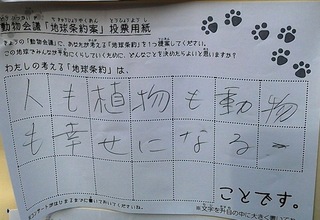 動物会議「地球条約案」投票用紙
きょうの「動物会議」に、あなたが考える「地球条約」を1つ提案してください。
この地球でみんなが平和にくらしていくために、どんなことを決めたらよいと思いますか?
わたしの考える「地球条約」は、
人も植物も動物
も幸せになる
ことです。